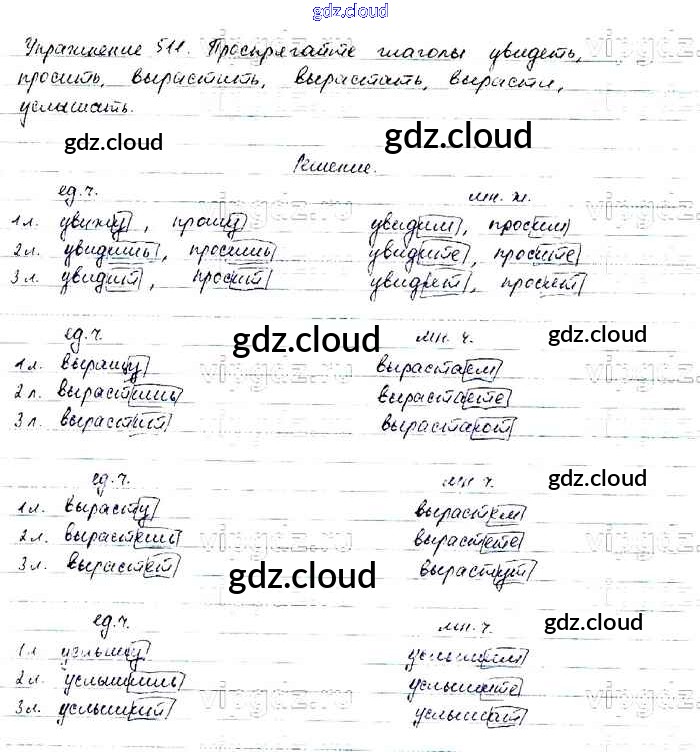 gdz.cloud
Упражнение 511. Проспрягайте глаголы увидеть,
просить, вырастить, вырастать, вырасти,
услышать.
gdz.cloud gdz.cloud gdz.cloud
Решение.
ед.ч. мн. ч.
1 л. увижу, прошу увидим, просим
2 л. увидишь, просишь увидите, просите
3 л. увидит, просит увидят, просят
ед.ч. gdz.cloud мн. ч. gdz.cloud
1 л. выращу вырастаем
2 л. вырастишь вырастаете
3 л. вырастит вырастают
gdz.cloud
ед.ч. мн ч. gdz.cloud
1 л. вырасту вырастем
2 л. вырастешь вырастете
3 л. вырастет gdz.cloud вырастут
ед.ч. мн.ч. gdz.cloud
1 л услышу услышим
2 л. услышишь услышите
3 л. услышит услышат